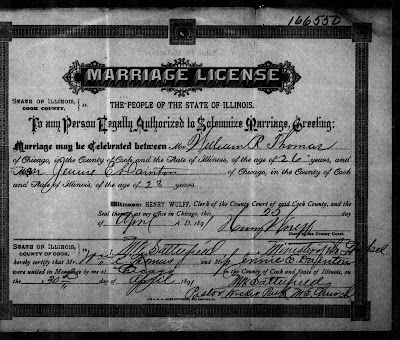 166550
MARRIAGE LICENSE
STATE OF ILLINOIS, COOK COUNTY, } ss. THE PEOPLE OF THE STATE OF ILLINOIS.
To any Person Legally Authorized to Solemnize Marriage, Greeting:
Marriage may be Celebrated between Mr. William R. Thomas
of Chicago, in the County of Cook and the State of Illinois, of the age of 26 years, and
M Jennie E. of Chicago, in the County of Cook
and State of Illinois, of the age of 22 years.
Witness: HENRY WULFF, Clerk of the County Court of said Cook County, and the
Seal thereof, at my office in Chicago, this 23 day
of April A.D. 1891
Henry Wulff
Clerk of the County Court.
STATE OF ILLINOIS, COUNTY OF COOK, } ss. I, Satterfield Minister of the Gospel
hereby certify that Mr. Wm R. Thomas and M Jennie E.
were united in Marriage by me at Chicago in the County of Cook and State of Illinois, on
the 30th day of April 1891
Satterfield
Pastor Wicker Park M. E. Church